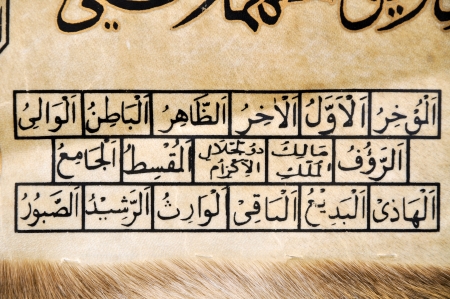 اَلْمُؤَخِّرُ اَلْاَوَّلُ اَلْاٰخِرُ اَلظَّاهِرُ اَلْبَاطِنُ اَلْوَالِىُ
اَلرَّؤُفُ مَالِكَ الْمُلْكِ ذُو الْجَلَالِ وَالْاِكْرَامِ اَلْمُقْسِطُ اَلْجَامِعُ
اَلْهَادِىْ اَلْبَدِيْعُ اَلْبَاقِىْ اَلْوَارِثُ اَلرَّشِيْدُ اَلصَّبُوْرُ